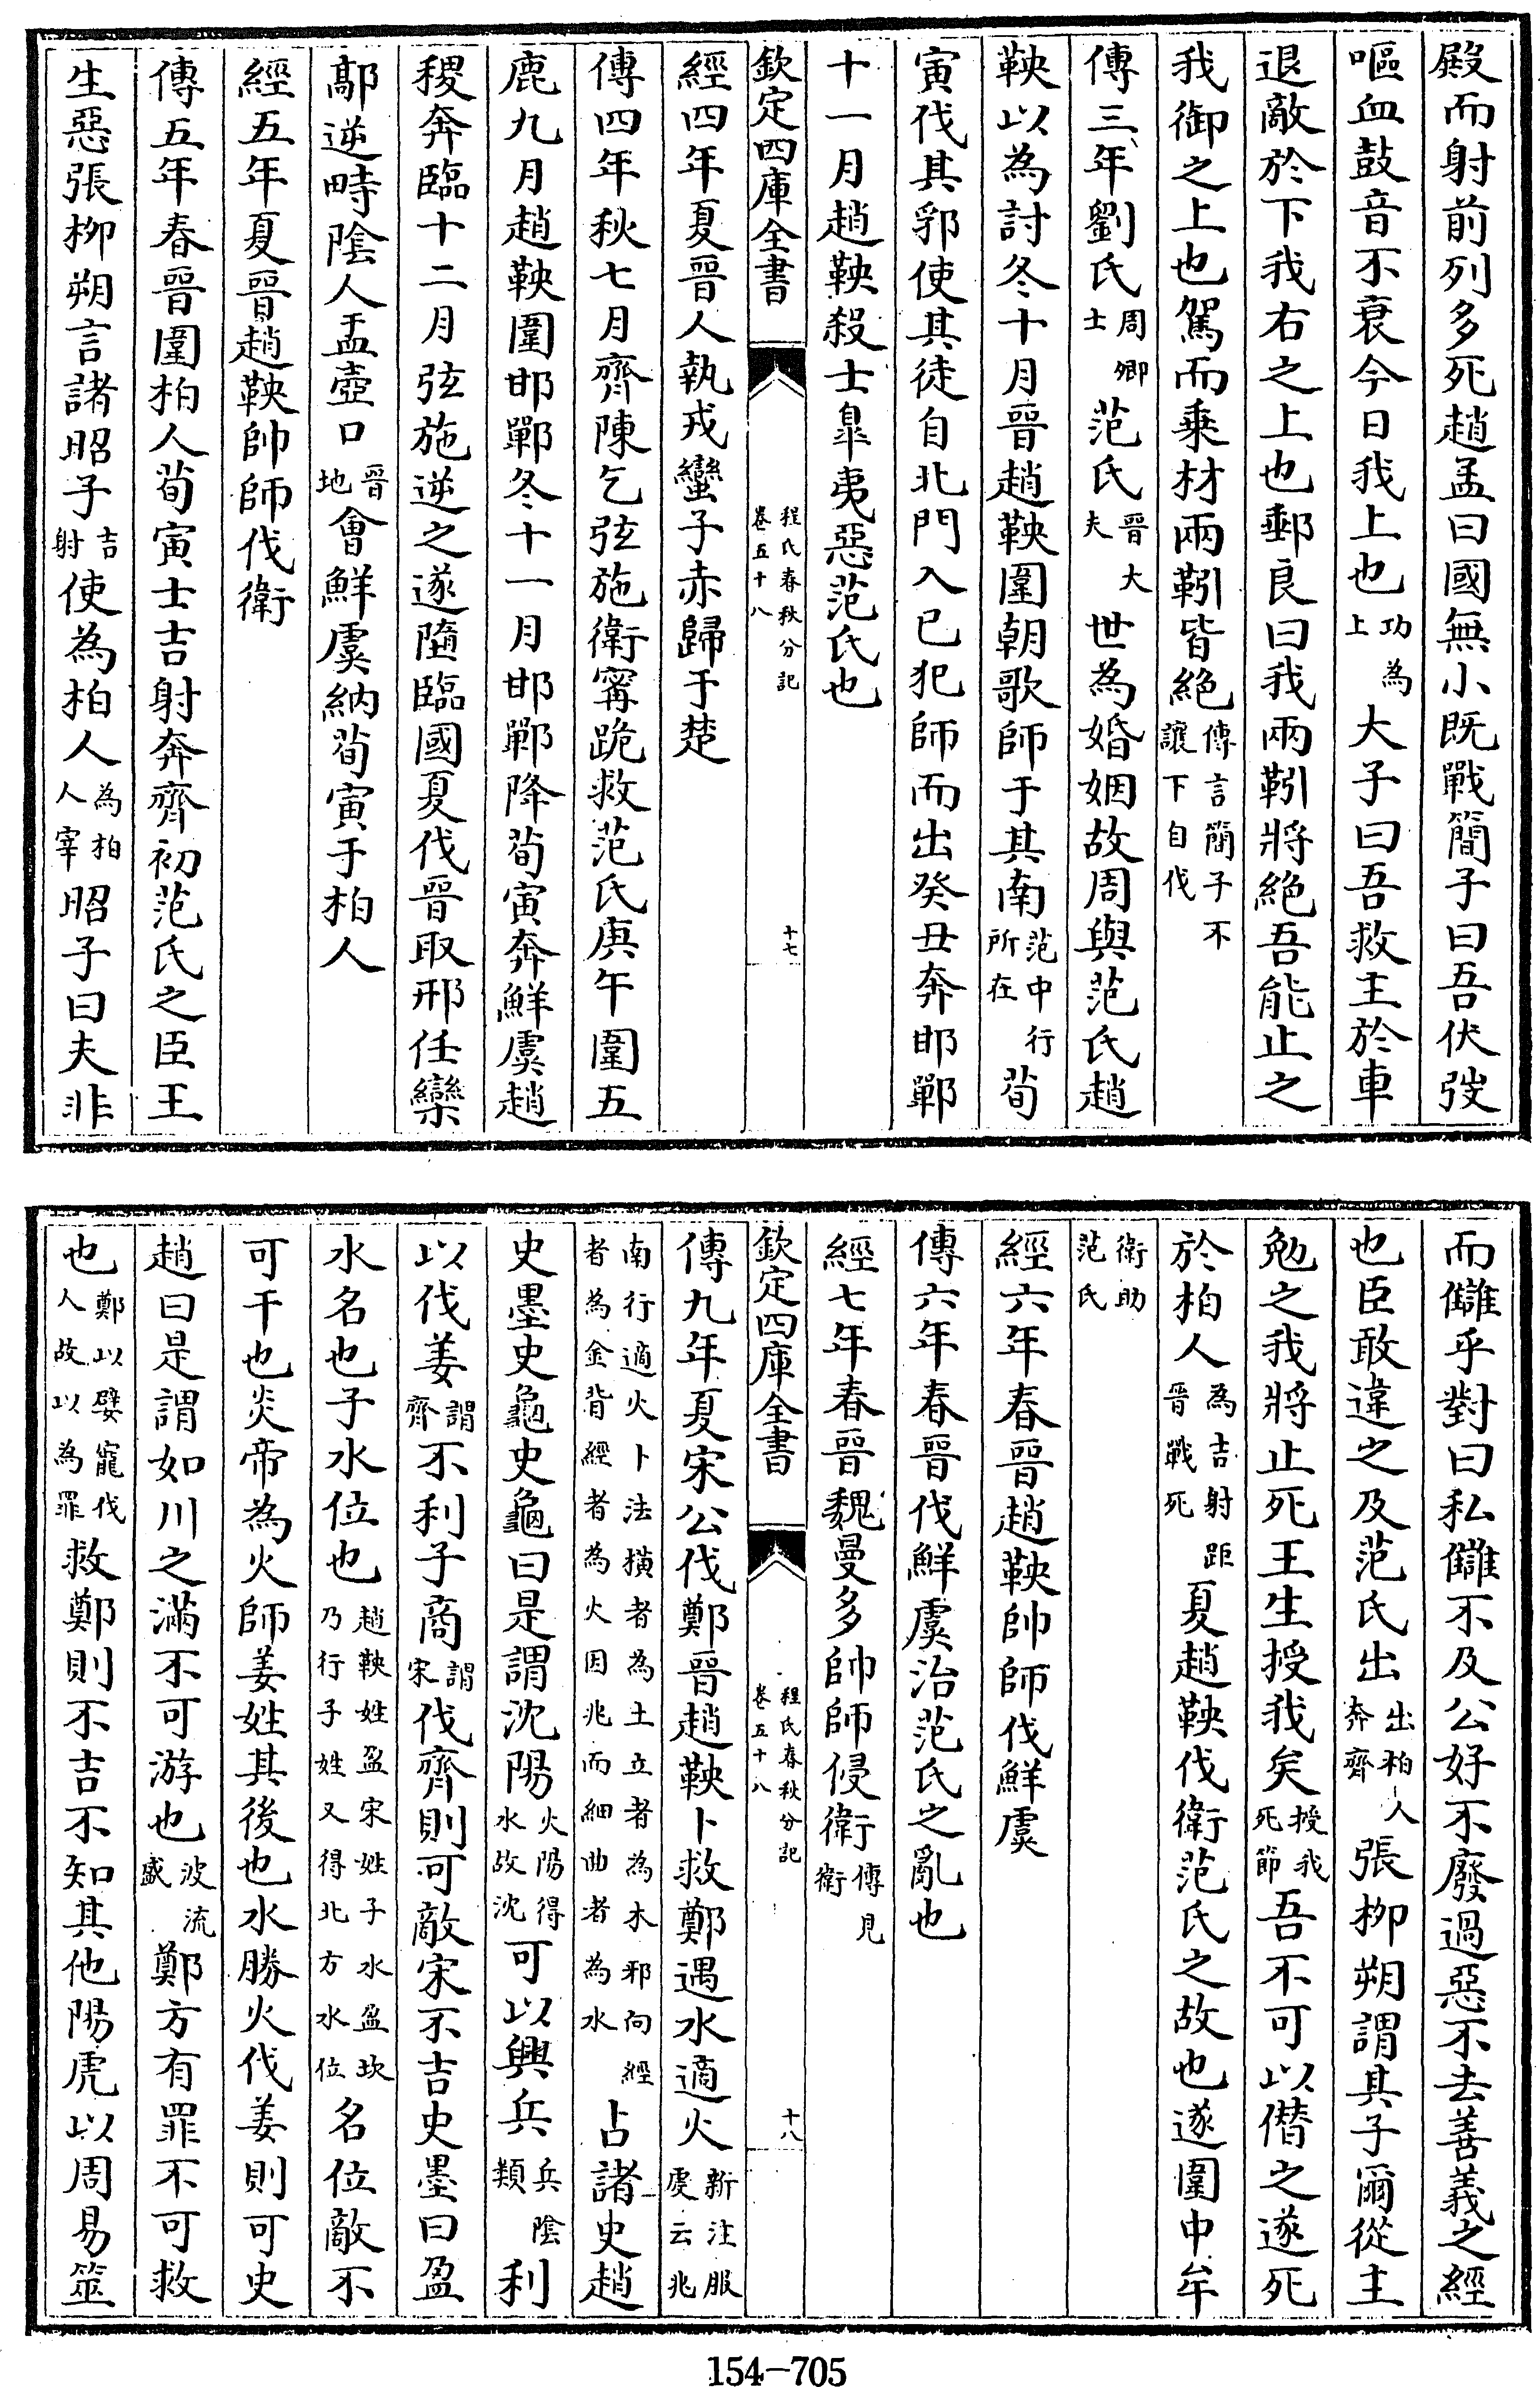 殿而射前列多死趙孟曰國無小既戰簡子曰吾伏弢
嘔血鼓音不衰今日我上也功為上大子曰吾救主於車
退敵於下我右之上也郵良曰我兩靷將絕吾能止之
我御之上也駕而乗材兩靷皆絕傳言簡子不讓下自伐
傳三年劉氏周卿士范氏晉大夫世為婚姻故周與范氏趙
鞅以為討冬十月晉趙鞅圍朝歌師于其南范中行所在荀
寅伐其郛使其徒自北門入已犯師而出癸丑奔邯鄲
十一月趙鞅殺士皐夷惡范氏也
欽定四庫全書
程氏春秋分記
卷五十八
十七
經四年夏晉人執戎蠻子赤歸于楚
傳四年秋七月齊陳乞弦施衛甯跪救范氏庚午圍五
鹿九月趙鞅圍邯鄲冬十一月邯鄲降荀寅奔鮮虞趙
稷奔臨十二月弦施逆之遂隳臨國夏伐晉取邢任欒
鄗逆畤陰人盂壺口晉地會鮮虞納荀寅于柏人
經五年夏晉趙鞅帥師伐衛
傳五年春晉圍柏人荀寅士吉射奔齊初范氏之臣王
生惡張栁朔言諸昭子吉射使為柏人為柏人宰昭子曰夫非
而讎乎對曰私讎不及公好不廢過惡不去善義之經
也臣敢違之及范氏出出柏人奔齊張栁朔謂其子爾從主
勉之我將止死王生授我矣授我死節吾不可以僭之遂死
於柏人為吉射距晉戰死夏趙鞅伐衛范氏之故也遂圍中牟
衛助范氏
經六年春晉趙鞅帥師伐鮮虞
傳六年春晉伐鮮虞治范氏之亂也
經七年春晉魏曼多帥師侵衛傳見衛
欽定四庫全書
程氏春秋分記
卷五十八
十八
傳九年夏宋公伐鄭晉趙鞅卜救鄭遇水適火新注服䖍云兆
南行適火卜法橫者為土立者為木邪向經者為金背經者為火因兆而細曲者為水占諸史趙
史墨史龜史龜曰是謂沈陽火陽得水故沈可以興兵兵陰類利
以伐姜謂齊不利子商謂宋伐齊則可敵宋不吉史墨曰盈
水名也子水位也趙鞅姓盈宋姓子水盈坎乃行子姓又得北方水位名位敵不
可干也炎帝為火師姜姓其後也水勝火伐姜則可史
趙曰是謂如川之滿不可游也波流盛鄭方有罪不可救
也鄭以嬖寵伐人故以為罪救鄭則不吉不知其他陽虎以周易筮
154-705